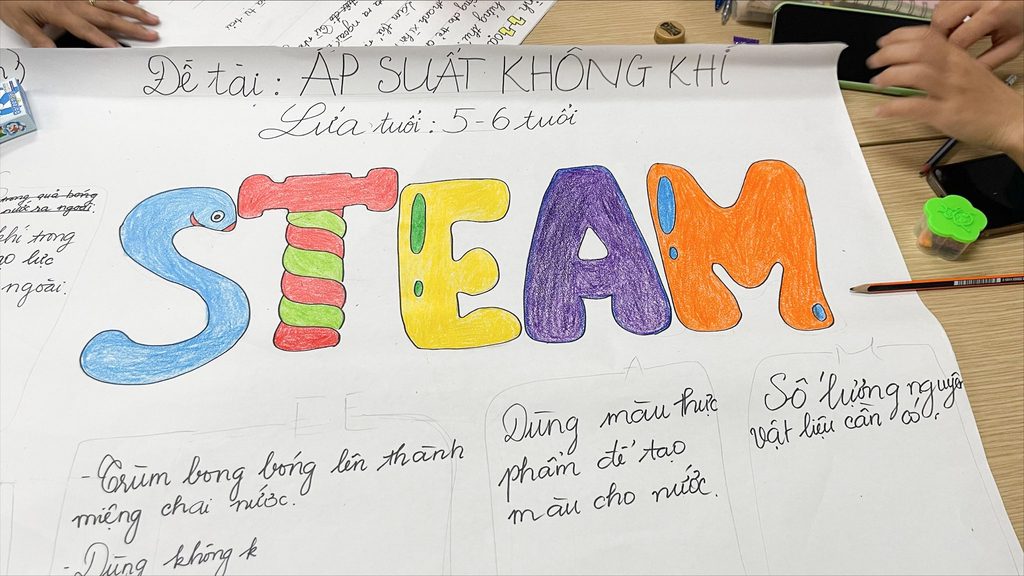 Đề tài: ÁP SUẤT KHÔNG KHÍ
Lứa tuổi: 5-6 tuổi
STEAM
trong quả bóng
nước ra ngoài.
khí trong
tạo lực
ngoài.
E
- Trùm bong bóng lên thành
miệng chai nước.
- Dùng không k
A
Dùng màu thực
phẩm để tạo
màu cho nước.
M
Số lượng nguyên
vật liệu cần có.